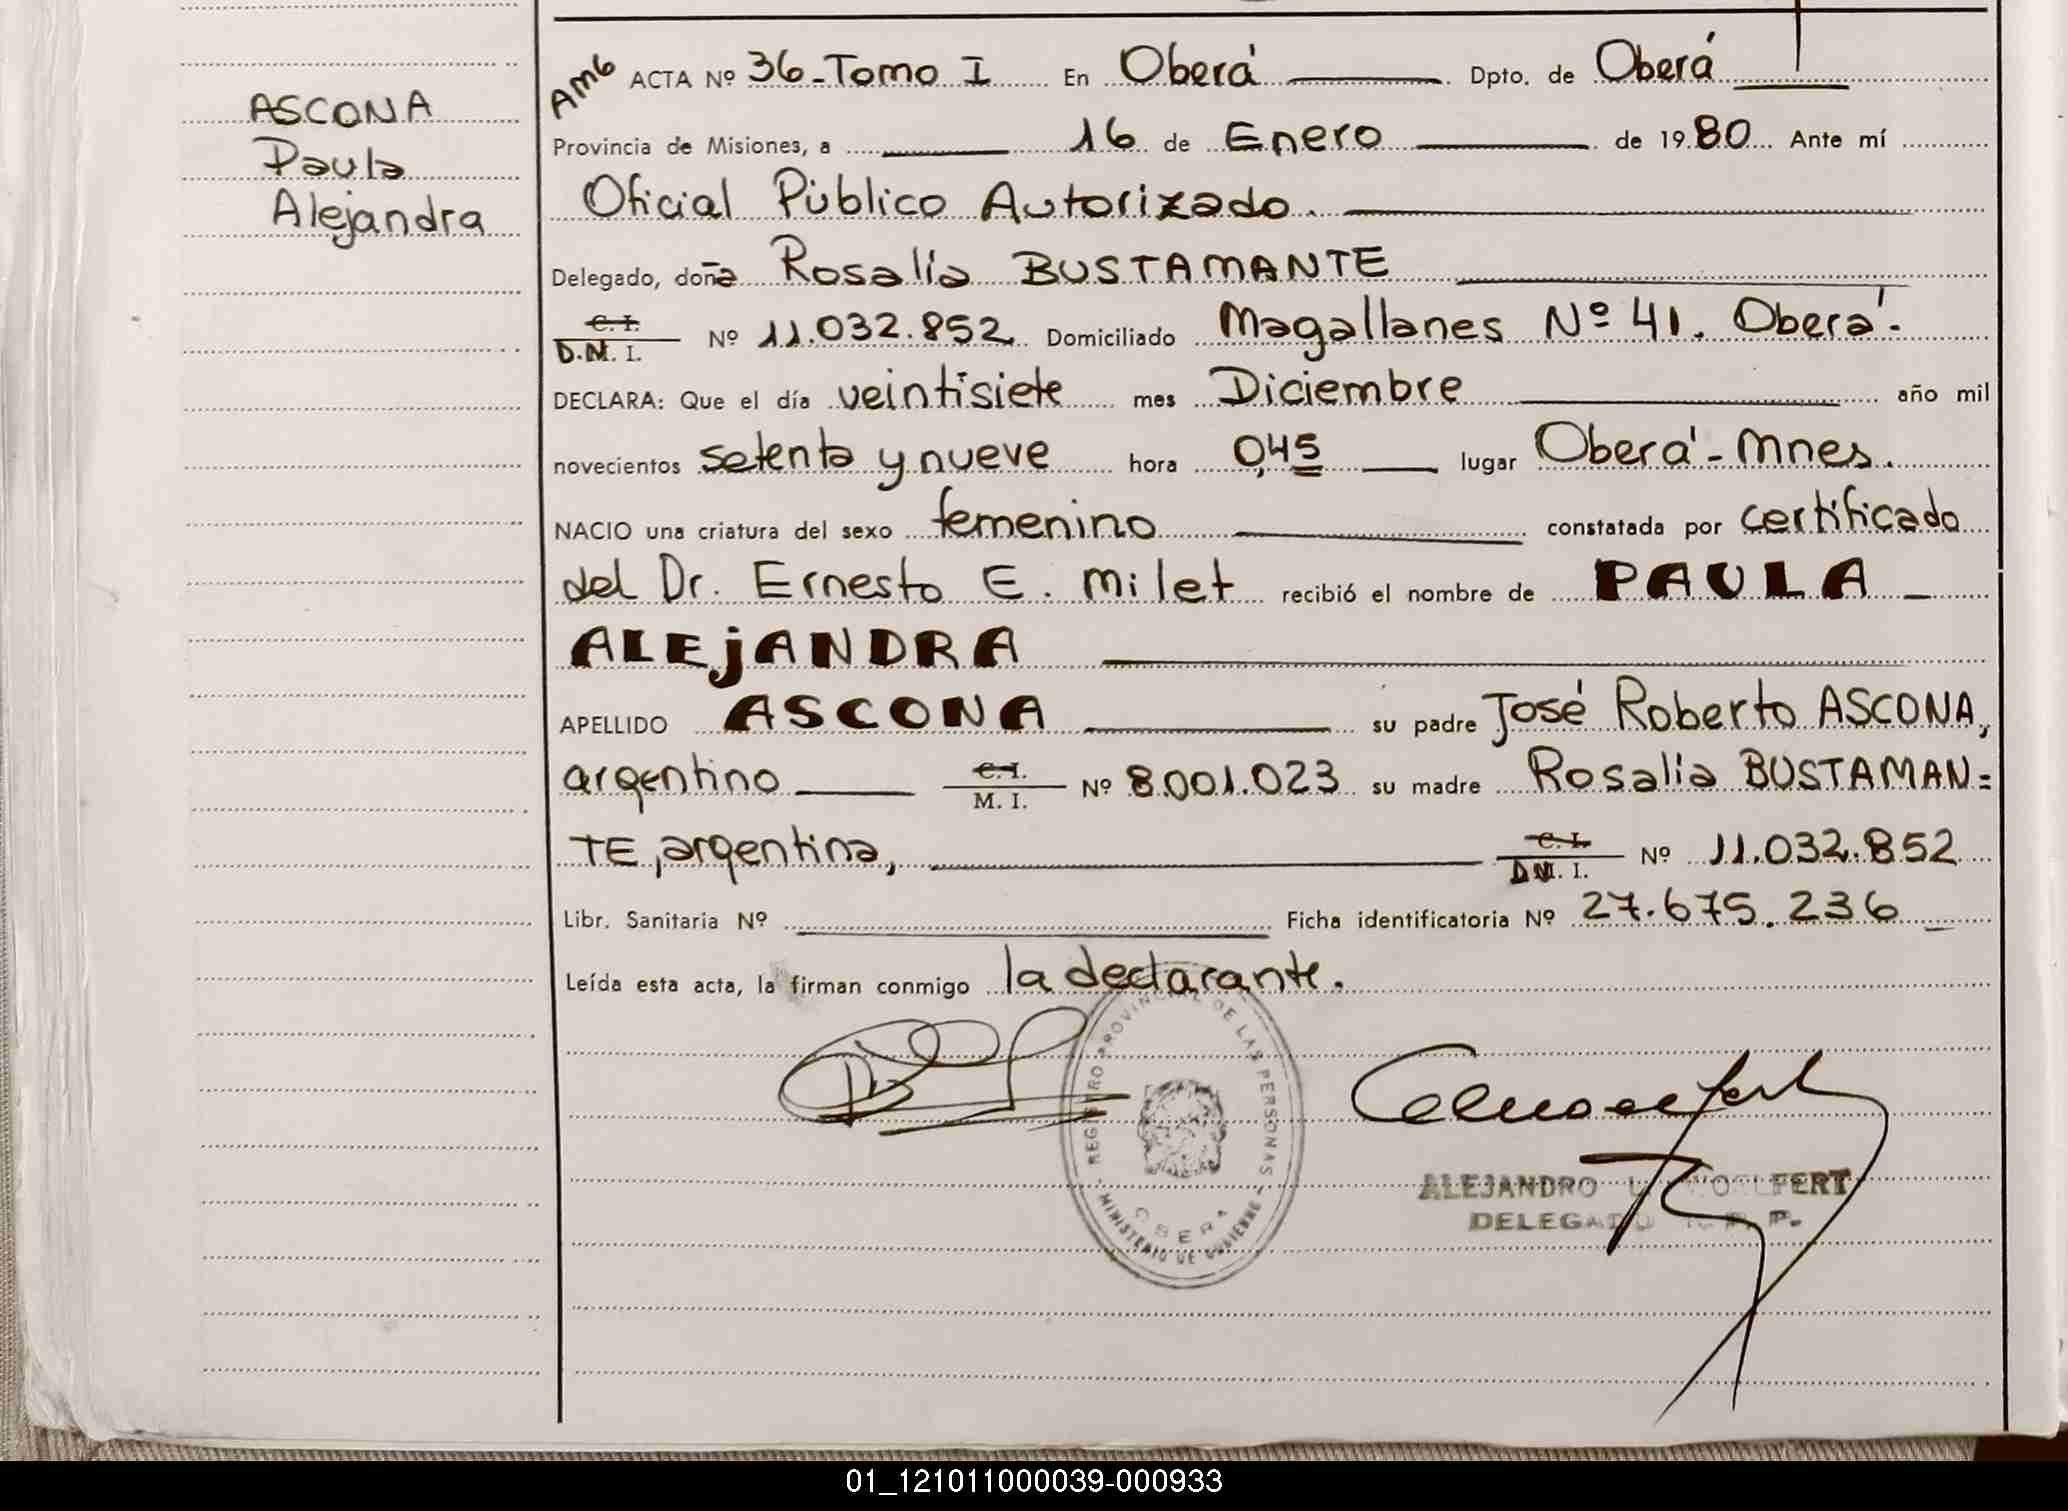 ASCONA
Paula
Alejandra
AMG ACTA Nº 36-Tomo I En Oberá Dpto. de Oberá
Provincia de Misiones, a 16 de Enero de 1980 Ante mí
Oficial Público Autorizado.
Delegado, doña Rosalía BUSTAMANTE
C. I.
D.N. I. Nº 11.032.852 Domiciliado Magallanes Nº 41. Oberá.
DECLARA: Que el día veintisiete mes Diciembre año mil
novecientos setenta y nueve hora 0,45 lugar Oberá-Mnes.
NACIO una criatura del sexo femenino constatada por certificado
del Dr. Ernesto E. Milet recibió el nombre de PAULA
ALEJANDRA
APELLIDO ASCONA su padre José Roberto ASCONA,
argentino C. I.
M. I. Nº 8.001.023 su madre Rosalía BUSTAMAN=
TE, argentina, C. I.
D.N. I. Nº 11.032.852
Libr. Sanitaria Nº Ficha identificatoria Nº 27.675.236
Leída esta acta, la firman conmigo la declarante.
REGISTRO PROVINCIAL DE LAS PERSONAS
MINISTERIO DE GOBIERNO
OBERA
ALEJANDRO
DELEGADO R. P. P.
01_121011000039-000933